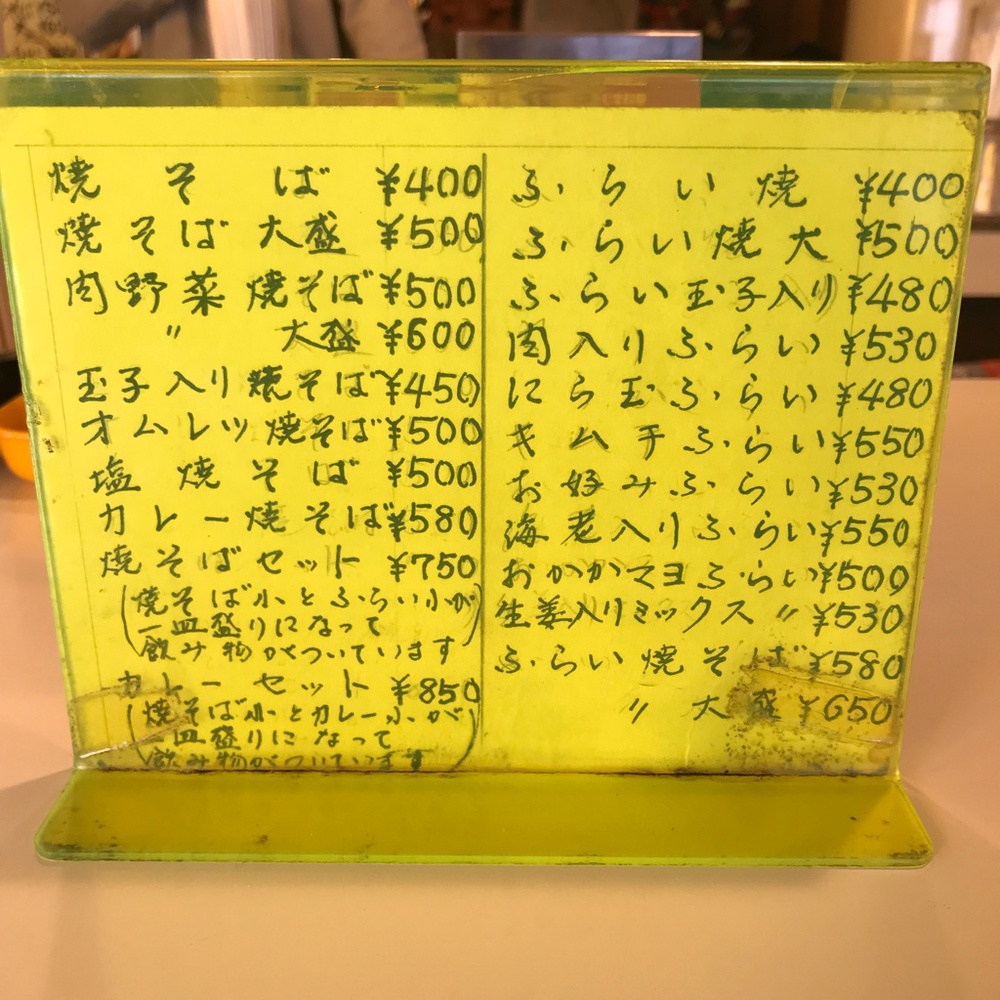 焼そば ¥400
焼そば大盛 ¥500
肉野菜焼そば ¥500
〃 大盛 ¥600
玉子入り焼そば ¥450
オムレツ焼そば ¥500
塩焼そば ¥500
カレー焼そば ¥580
焼そばセット ¥750
(焼そば小とふらい小が
一皿盛りになって
飲み物がついています)
カレーセット ¥850
(焼そば小とカレー小が
一皿盛りになって
飲み物がついています)
ふらい焼 ¥400
ふらい焼大 ¥500
ふらい玉子入り ¥480
肉入りふらい ¥530
にら玉ふらい ¥480
キムチふらい ¥550
お好みふらい ¥530
海老入りふらい ¥550
おかかマヨふらい ¥500
生姜入りミックス〃 ¥530
ふらい焼そば ¥580
〃 大盛 ¥650